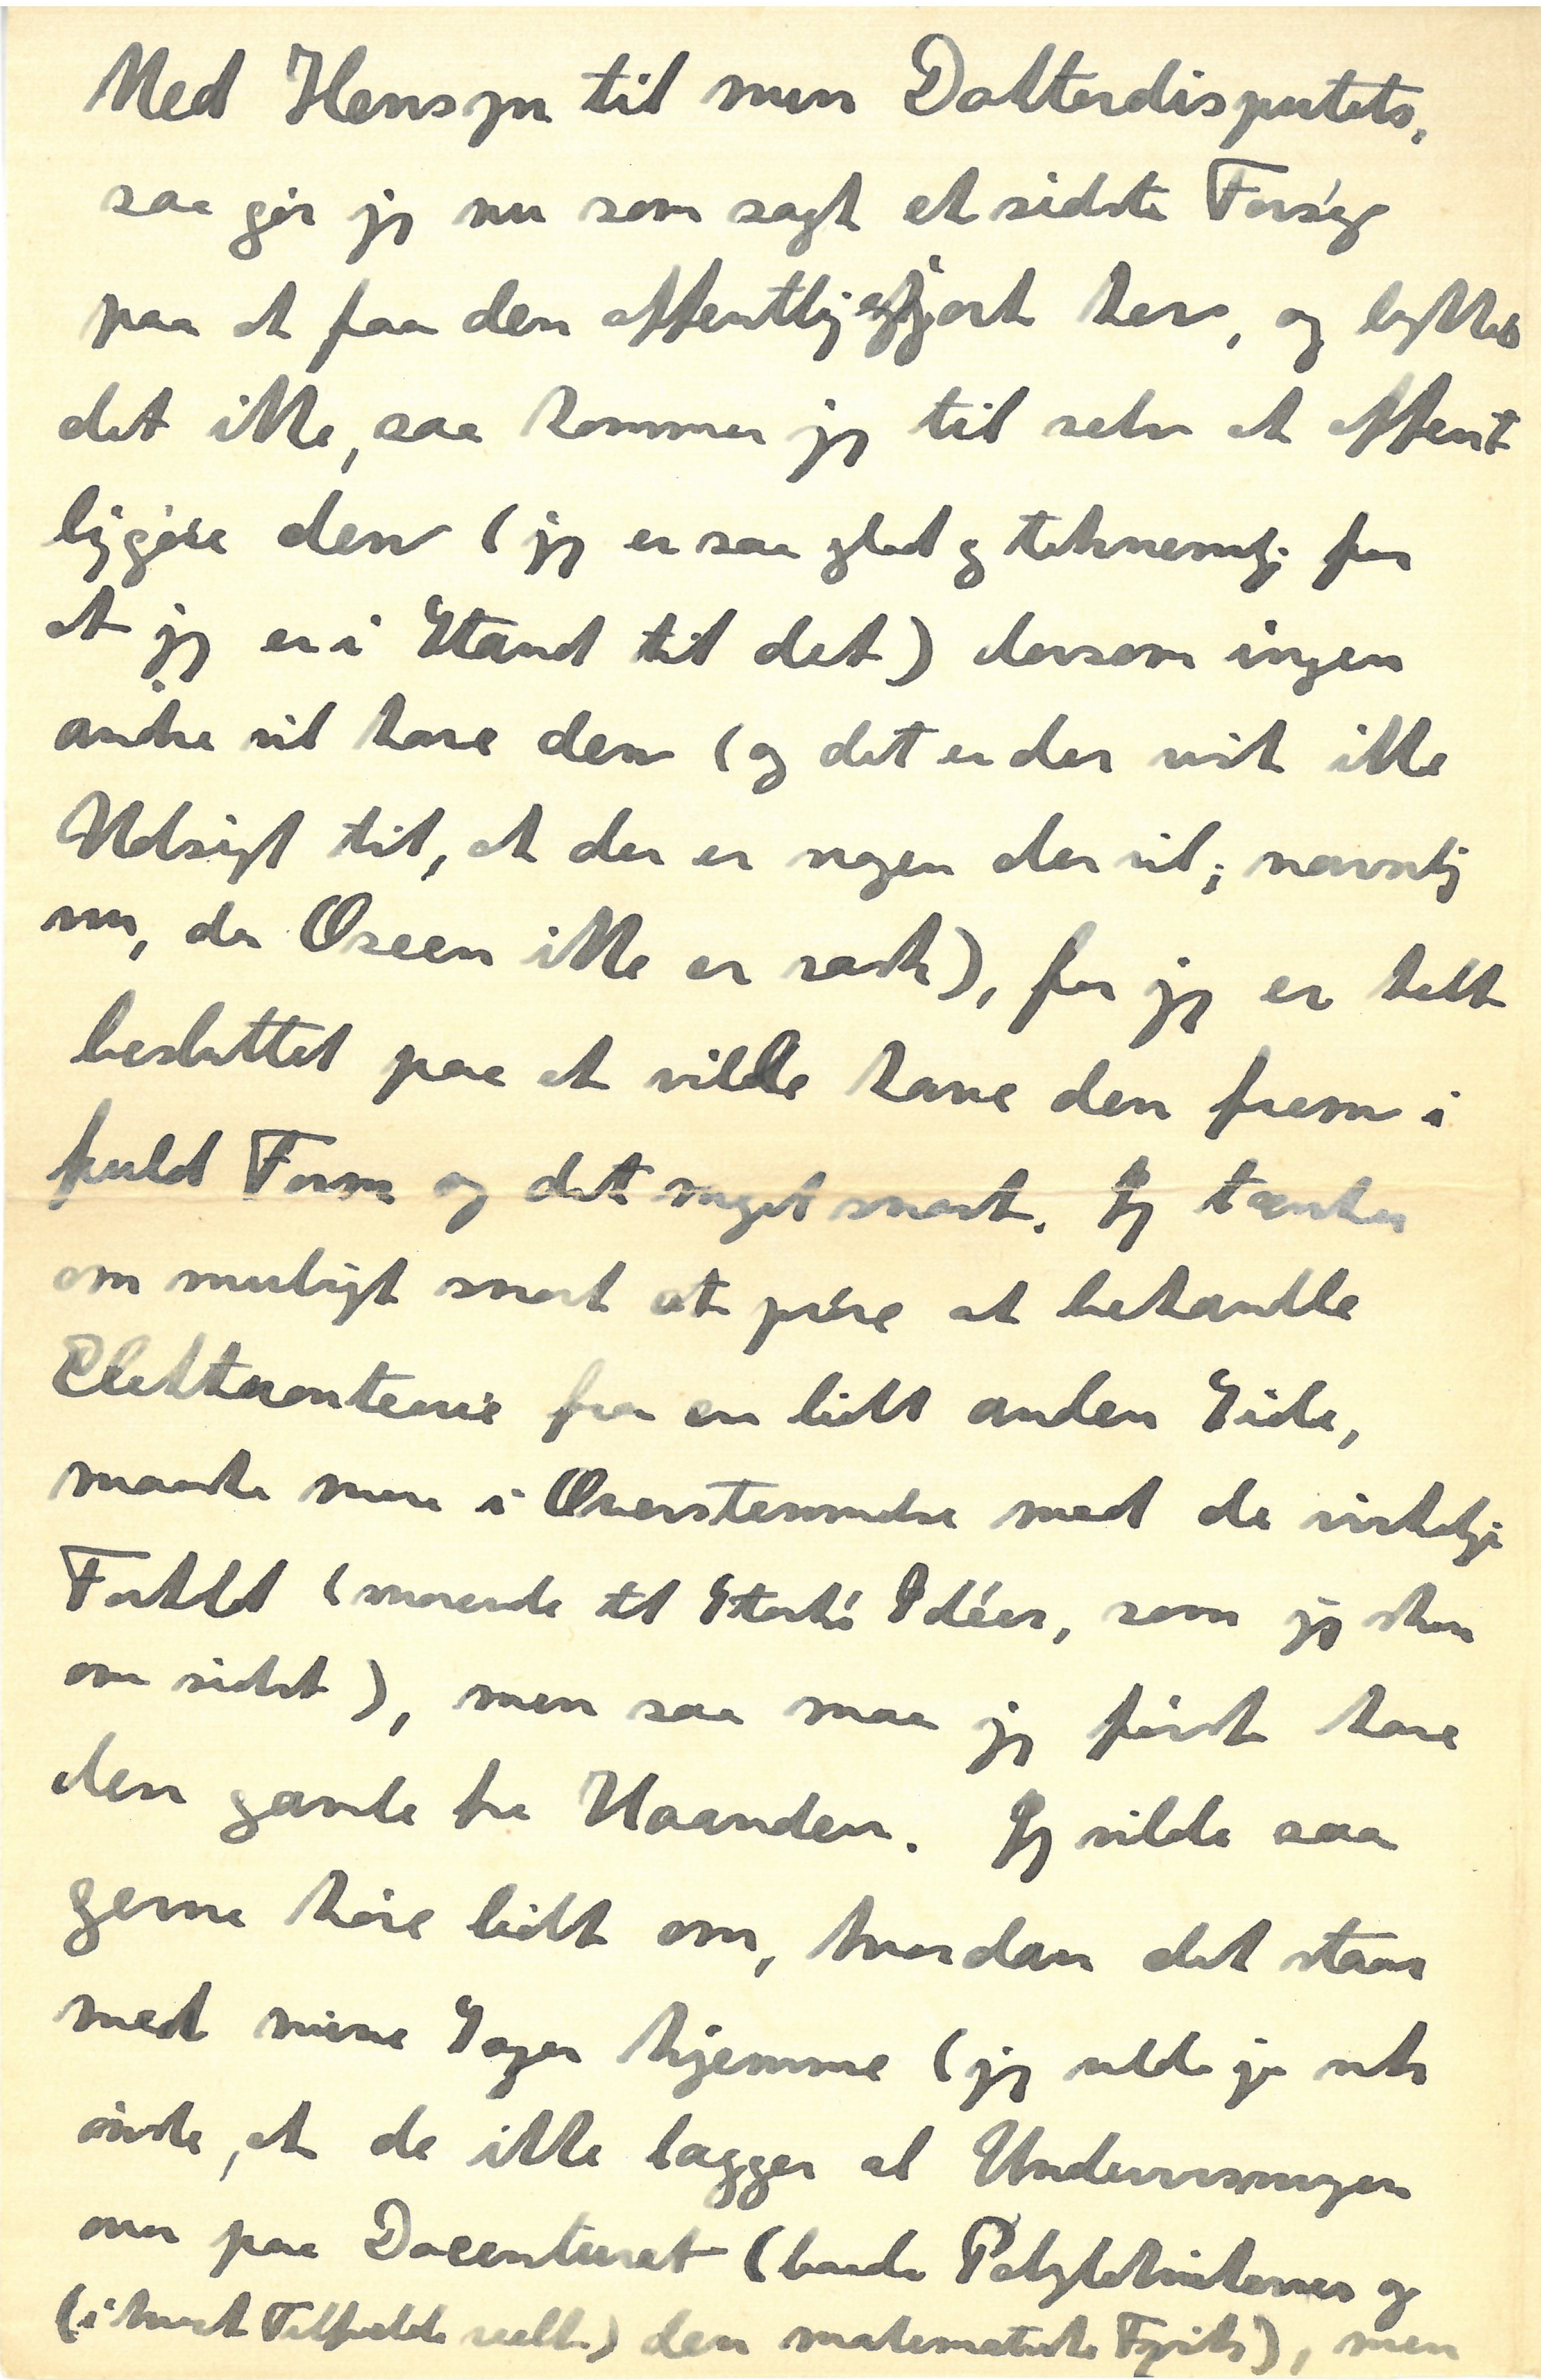 Med Hensyn til min Doktordisputats,
saa gør jeg nu som sagt et sidste Forsøg
paa at faa den offentliggjort her, og lykkes
det ikke, saa kommer jeg til selv at offent
liggøre den (jeg er saa glad og taknemlig for
at jeg er i Stand til det) dersom ingen
andre vil have den (og det er der vist ikke
Udsigt til, at der er nogen der vil; navnlig
nu, da Oseen ikke er rask), for jeg er helt
besluttet paa at vilde have den frem i
fuld Form og det meget snart. Jeg tænker
om muligt snart at prøve at behandle
Elektronteorie fra en lidt anden Side,
maaske mere i Overstemmelse med de virkelige
Forhold (svarende til Starks Idéer, som jeg skrev
om sidst), men saa maa jeg først have
den gamle fra Haanden. Jeg vilde saa
gerne høre lidt om, hvordan det staar
med mine Sager hjemme (jeg vilde jo
ønske, at de ikke lægger al Undervisningen
over paa Docenturet (baade Polyteknikernes og
(i hvert Tilfælde reelle) den matematiske Fysik), men